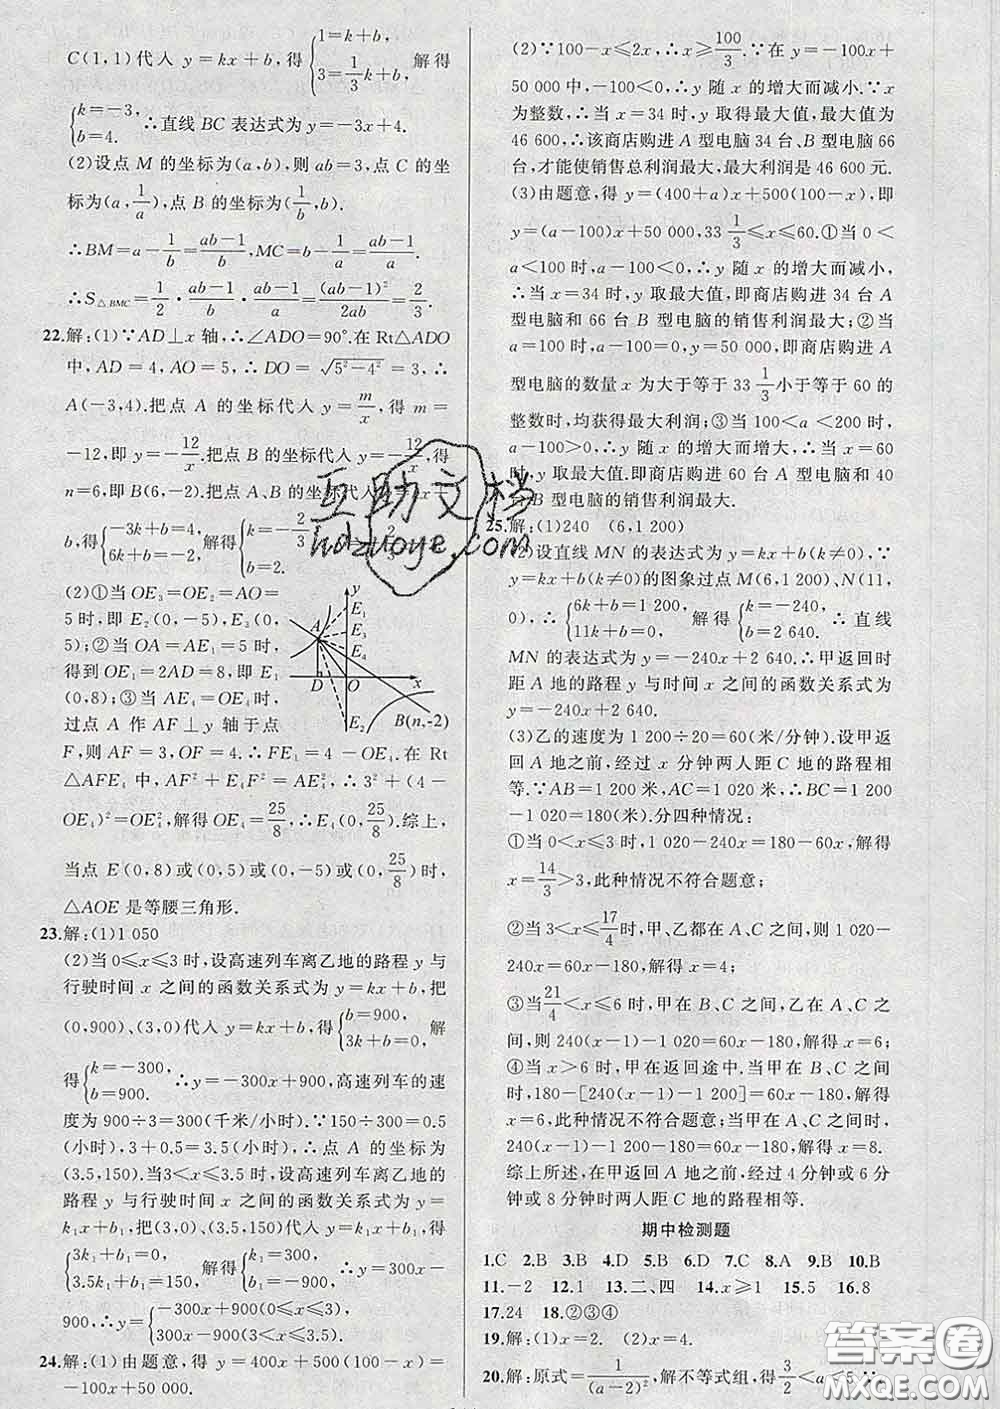 C(1,1)代入 y=kx+b,得{1=k+b, 3=1/3k+b, 解得
{k=-3, b=4. ∴直线 BC 表达式为 y=-3x+4.
(2)设点 M 的坐标为(a,b),则 ab=3,点 C 的坐
标为(a,1/a),点 B 的坐标为(1/b,b).
∴BM=a-1/b=(ab-1)/b,MC=b-1/a=(ab-1)/a.
∴S△BMC=1/2·(ab-1)/b·(ab-1)/a=(ab-1)²/2ab=2/3.
22.解:(1)∵AD⊥x 轴,∴∠ADO=90°.在 Rt△ADO
中,AD=4,AO=5,∴DO=√(5²-4²)=3,∴
A(-3,4).把点 A 的坐标代入 y=m/x,得 m=
-12,即 y=-12/x.把点 B 的坐标代入 y=-12/x,得
n=6,即 B(6,-2).把点 A、B 的坐标代入 y=kx+
b,得{-3k+b=4, 6k+b=-2. 解得{k=-2/3, b=2.
(2)①当 OE₃=OE₂=AO=
5 时,即 E₂(0,-5),E₃(0,
5);②当 OA=AE₁=5 时,
得到 OE₁=2AD=8,即 E₁
(0,8);③当 AE₄=OE₄时,
过点 A 作 AF⊥y 轴于点
F,则 AF=3,OF=4.∴FE₄=4-OE₄.在 Rt
△AFE₄ 中,AF²+E₄F²=AE₄²,∴3²+(4-
OE₄)²=OE₄²,解得 OE₄=25/8,∴E₄(0,25/8).综上,
当点 E(0,8)或(0,5)或(0,-5)或(0,25/8)时,
△AOE 是等腰三角形.
y
A
E₁
E₃
E₄
D
O
x
E₂
B(n,-2)
23.解:(1)1 050
(2)当 0≤x≤3 时,设高速列车离乙地的路程 y 与
行驶时间 x 之间的函数关系式为 y=kx+b,把
(0,900)、(3,0)代入 y=kx+b,得{b=900, 3k+b=0, 解
得{k=-300, b=900. ∴y=-300x+900,高速列车的速
度为 900÷3=300(千米/小时).∵150÷300=0.5
(小时),3+0.5=3.5(小时),∴点 A 的坐标为
(3.5,150).当 3<x≤3.5 时,设高速列车离乙地的
路程 y 与行驶时间 x 之间的函数关系式为 y=
k₁x+b₁,把(3,0)、(3.5,150)代入 y=k₁x+b₁,得
{3k₁+b₁=0, 3.5k₁+b₁=150, 解得{k₁=300, b₁=-900. ∴y=300x-
900,∴y={-300x+900(0≤x≤3), 300x-900(3<x≤3.5).
24.解:(1)由题意,得 y=400x+500(100-x)=
-100x+50 000.
(2)∵100-x≤2x,∴x≥100/3.∵在 y=-100x+
50 000 中,-100<0,∴y 随 x 的增大而减小.∵x
为整数,∴当 x=34 时,y 取得最大值,最大值为
46 600,∴该商店购进 A 型电脑 34 台、B 型电脑 66
台,才能使销售总利润最大,最大利润是 46 600 元.
(3)由题意,得 y=(400+a)x+500(100-x),即
y=(a-100)x+50 000,33 1/3≤x≤60.①当 0<
a<100 时,a-100<0,∴y 随 x 的增大而减小,
∴当 x=34 时,y 取最大值,即商店购进 34 台 A
型电脑和 66 台 B 型电脑的销售利润最大;②当
a=100 时,a-100=0,y=50 000,即商店购进 A
型电脑的数量 x 为大于等于 33 1/3小于等于 60 的
整数时,均获得最大利润;③当 100<a<200 时,
a-100>0,∴y 随 x 的增大而增大,∴当 x=60
时,y 取最大值.即商店购进 60 台 A 型电脑和 40
台 B 型电脑的销售利润最大.
25.解:(1)240 (6,1 200)
(2)设直线 MN 的表达式为 y=kx+b(k≠0),∵
y=kx+b(k≠0)的图象过点 M(6,1 200)、N(11,
0),∴{6k+b=1 200, 11k+b=0, 解得{k=-240, b=2 640. ∴直线
MN 的表达式为 y=-240x+2 640.∴甲返回时
距 A 地的路程 y 与时间 x 之间的函数关系式为
y=-240x+2 640.
(3)乙的速度为 1 200÷20=60(米/分钟).设甲返
回 A 地之前,经过 x 分钟两人距 C 地的路程相
等.∵AB=1 200 米,AC=1 020 米,∴BC=1 200
-1 020=180(米).分四种情况:
①当 0<x≤3 时,1 020-240x=180-60x,解得
x=14/3>3,此种情况不符合题意;
②当 3<x≤17/4时,甲、乙都在 A、C 之间,则 1 020-
240x=60x-180,解得 x=4;
③当21/4<x≤6 时,甲在 B、C 之间,乙在 A、C 之
间,则 240(x-1)-1 020=60x-180,解得 x=6;
④当 x>6 时,甲在返回途中.当甲在 B、C 之间时,
180-[240(x-1)-1 200]=60x-180,解得
x=6,此种情况不符合题意;当甲在 A、C 之间时,
240(x-1)-1 200-180=60x-180,解得 x=8.
综上所述,在甲返回 A 地之前,经过 4 分钟或 6 分
钟或 8 分钟时两人距 C 地的路程相等.
期中检测题
1.C 2.B 3.B 4.D 5.B 6.D 7.C 8.A 9.B 10.B
11.-2 12.1 13.二、四 14.x≥1 15.5 16.8
17.24 18.②③④
19.解:(1)x=2. (2)x=4.
20.解:原式=1/(a-2)²,解不等式组,得3/2<a<5.∵
互助文档
hdzuoye.com
答案圈
MXQE.COM